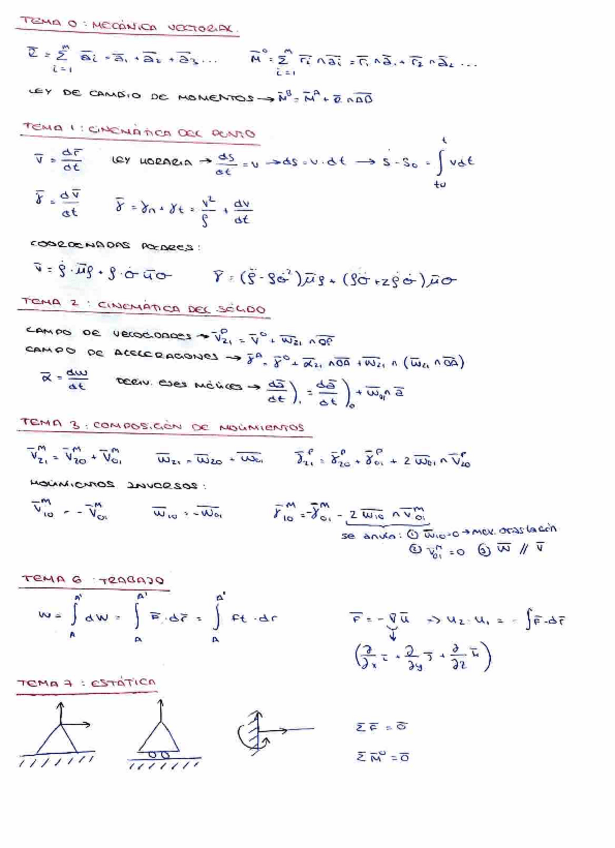 TEMA 0: MECÁNICA VECTORIAL.
R̄ = Σ_{i=1}^{n} āi = ā1 + ā2 + ā3 ... M̄^O = Σ_{i=1}^{n} r̄i ∧ āi = r̄1 ∧ ā1 + r̄2 ∧ ā2 ...
LEY DE CAMBIO DE MOMENTOS → M̄^B = M̄^A + R̄ ∧ AB
TEMA 1: CINEMÁTICA DEL PUNTO
v̄ = dr̄/dt LEY HORARIA → ds/dt = v → ds = v · dt → S - S0 = ∫_{t0}^{t} v dt
γ̄ = dv̄/dt γ̄ = γn + γt = v²/ρ + dv/dt
COORDENADAS POLARES:
v̄ = ρ̇ · ūρ + ρ · σ̇ ūσ γ̄ = (ρ̈ - ρσ̇²) ūρ + (ρσ̈ + 2ρ̇σ̇) ūσ
TEMA 2: CINEMÁTICA DEL SÓLIDO
CAMPO DE VELOCIDADES → v̄21^P = v̄^O + w̄21 ∧ OP
CAMPO DE ACELERACIONES → γ̄^A = γ̄^O + ᾱ21 ∧ OA + w̄21 ∧ (w̄21 ∧ OA)
ᾱ = dw/dt DERIV. EJES MÓVILES → dā/dt)1 = dā/dt)0 + w̄01 ∧ ā
TEMA 3: COMPOSICIÓN DE MOVIMIENTOS
v̄21^M = v̄20^M + v̄01^M w̄21 = w̄20 + w̄01 γ̄21^P = γ̄20^P + γ̄01^P + 2 w̄01 ∧ v̄20^P
MOVIMIENTOS INVERSOS:
v̄10^M = - v̄01^M w̄10 = - w̄01 γ̄10^M = -γ̄01^M - 2 w̄10 ∧ v̄01^M
se anula: ① w̄10 = 0 → mov. traslación
② v01^M = 0 ③ w̄ // v̄
TEMA 6: TRABAJO
W = ∫_A^{A'} dW = ∫_A^{A'} F̄ · dr̄ = ∫_A^{A'} Ft · dr F̄ = - ∇̄ u → u2 - u1 = - ∫ F̄ · dr̄
(∂/∂x ī + ∂/∂y j̄ + ∂/∂z k̄)
TEMA 7: ESTÁTICA
Σ F̄ = 0̄
Σ M̄^O = 0̄